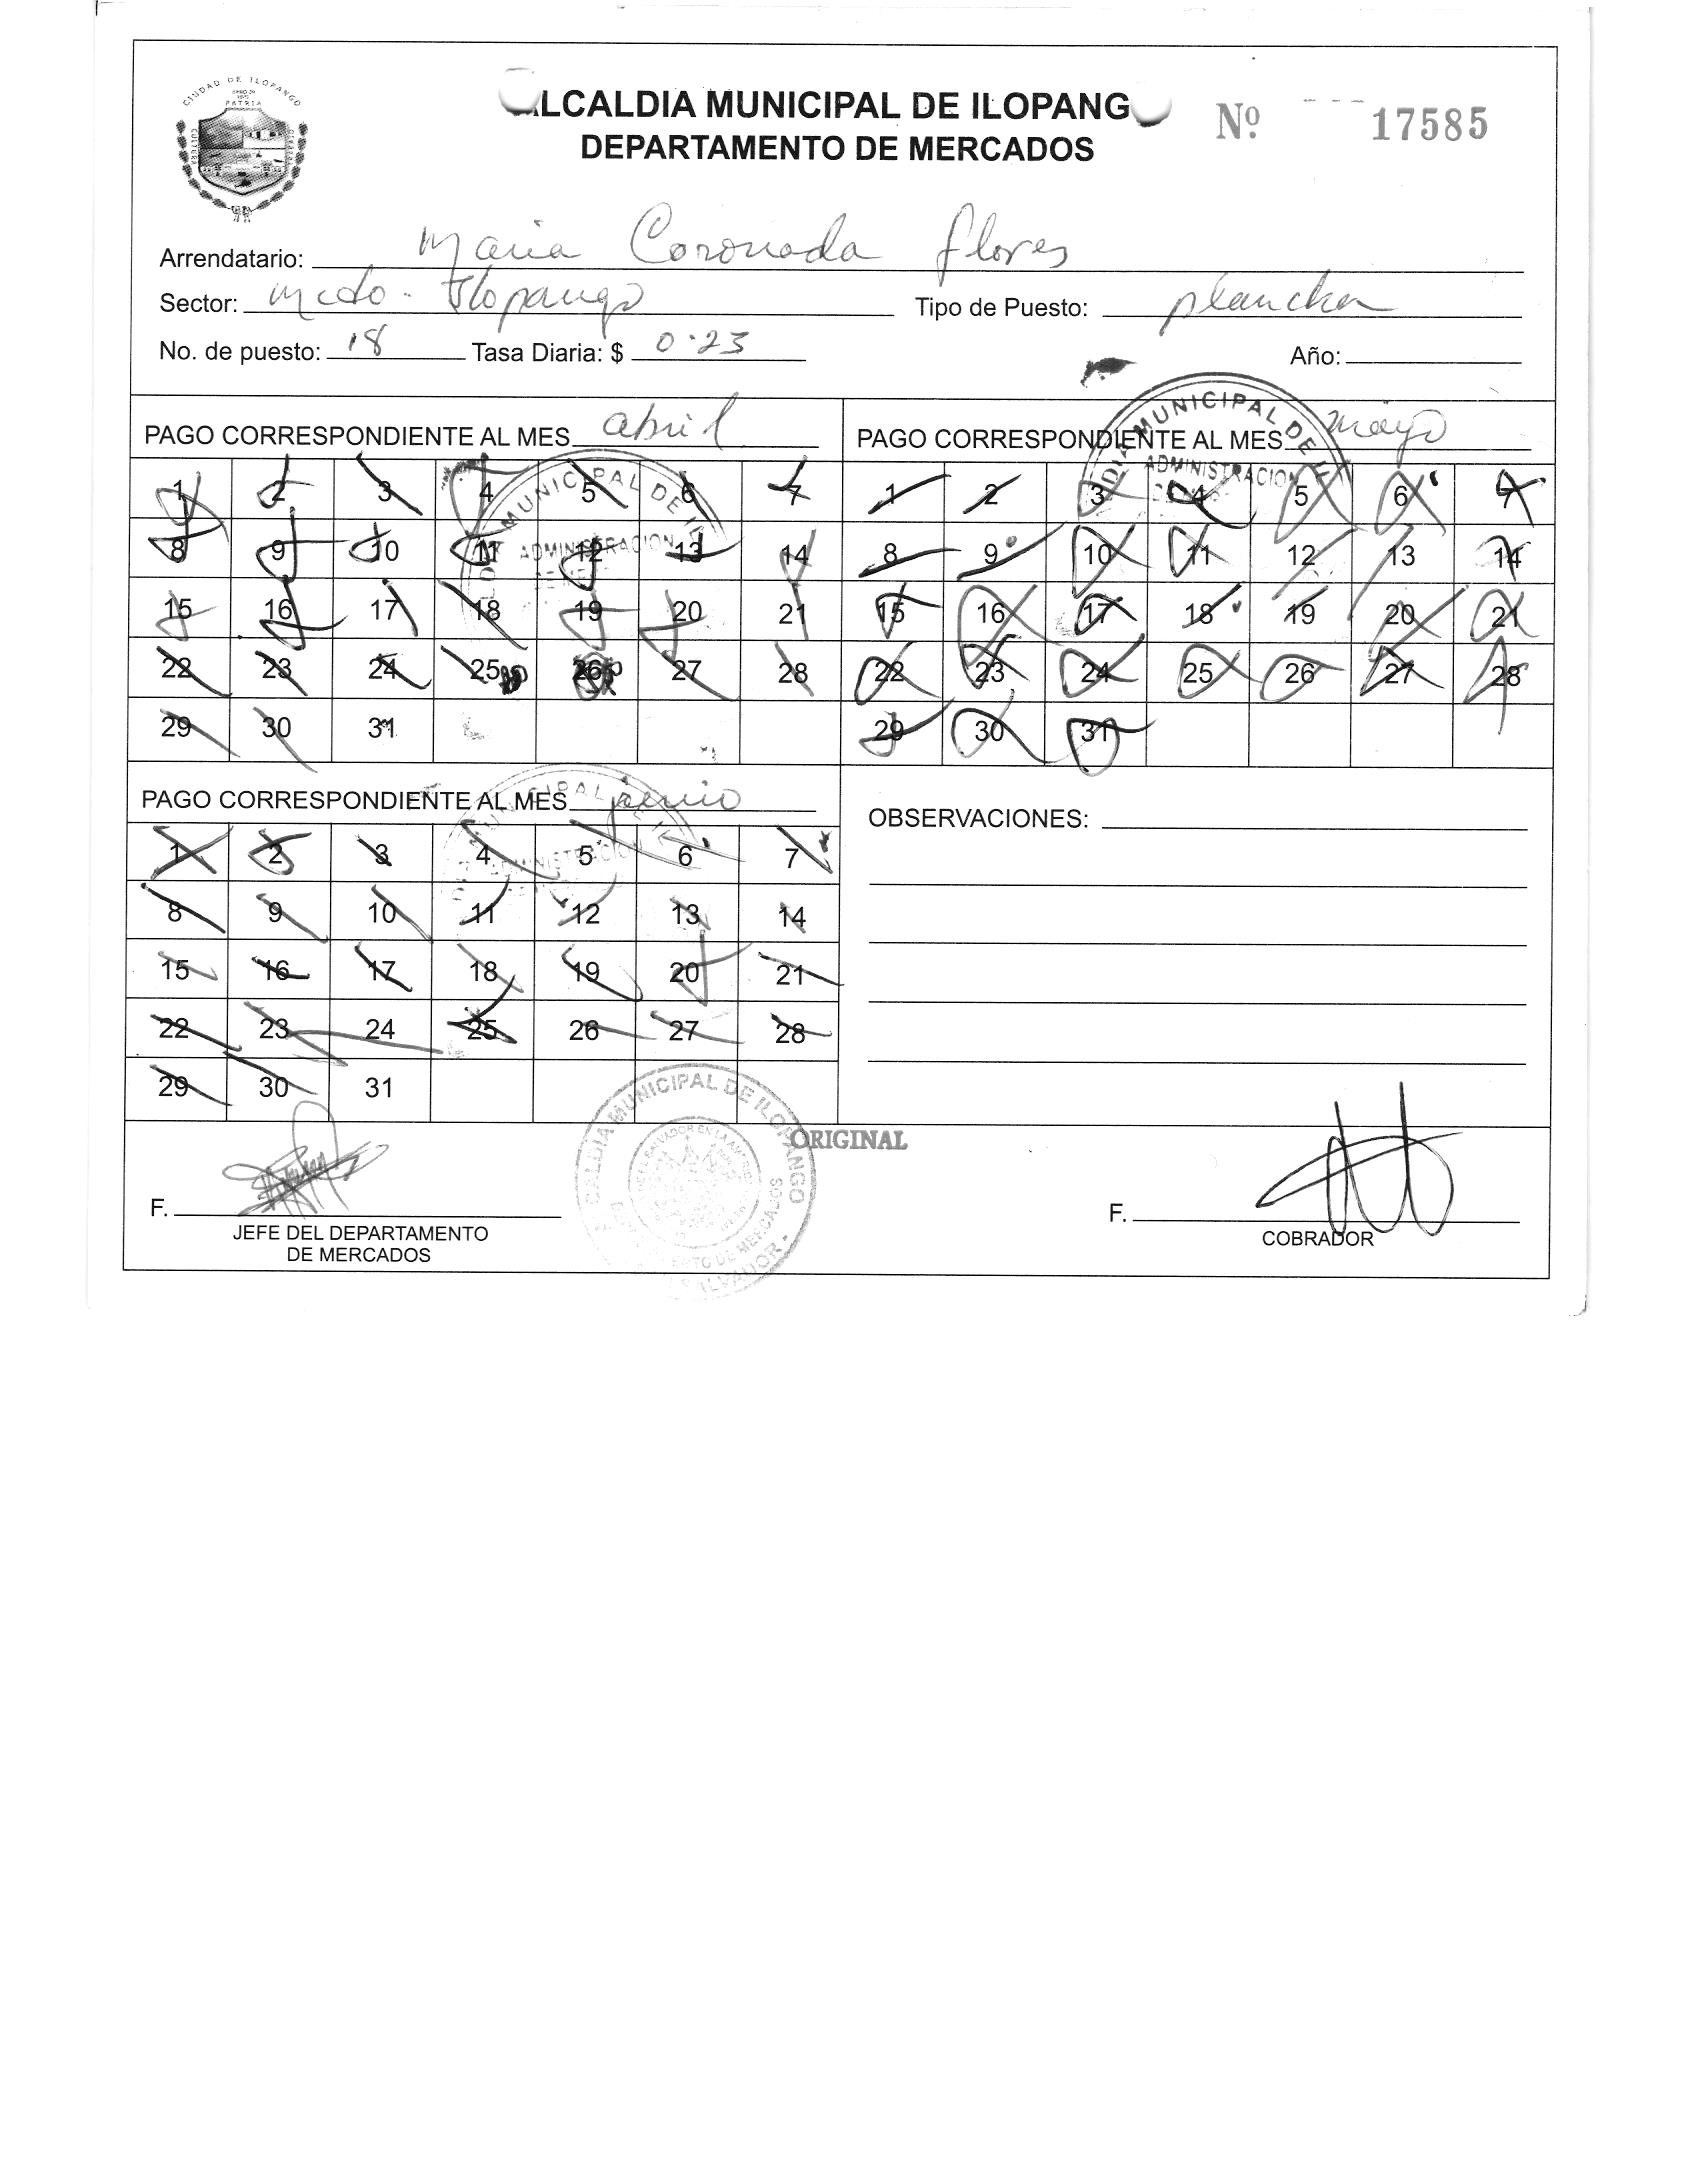 CIUDAD DE ILOPANGO
PATRIA
CULTURA
ALCALDIA MUNICIPAL DE ILOPANGO
DEPARTAMENTO DE MERCADOS
Nº 17585
Arrendatario: Maria Coronada flores
Sector: mcdo. Ilopango Tipo de Puesto: plancha
No. de puesto: 18 Tasa Diaria: $ 0.23 Año:
PAGO CORRESPONDIENTE AL MES abril
1 2 3 4 5 6 7
8 9 10 11 12 13 14
15 16 17 18 19 20 21
22 23 24 25 26 27 28
29 30 31
MUNICIPAL DE IL
ADMINISTRACION
PAGO CORRESPONDIENTE AL MES mayo
1 2 3 4 5 6 7
8 9 10 11 12 13 14
15 16 17 18 19 20 21
22 23 24 25 26 27 28
29 30 31
DIA MUNICIPAL DE IL
ADMINISTRACION
PAGO CORRESPONDIENTE AL MES junio
1 2 3 4 5 6 7
8 9 10 11 12 13 14
15 16 17 18 19 20 21
22 23 24 25 26 27 28
29 30 31
OBSERVACIONES:
ORIGINAL
ALCALDIA MUNICIPAL DE ILOPANGO
F.
JEFE DEL DEPARTAMENTO
DE MERCADOS
F.
COBRADOR